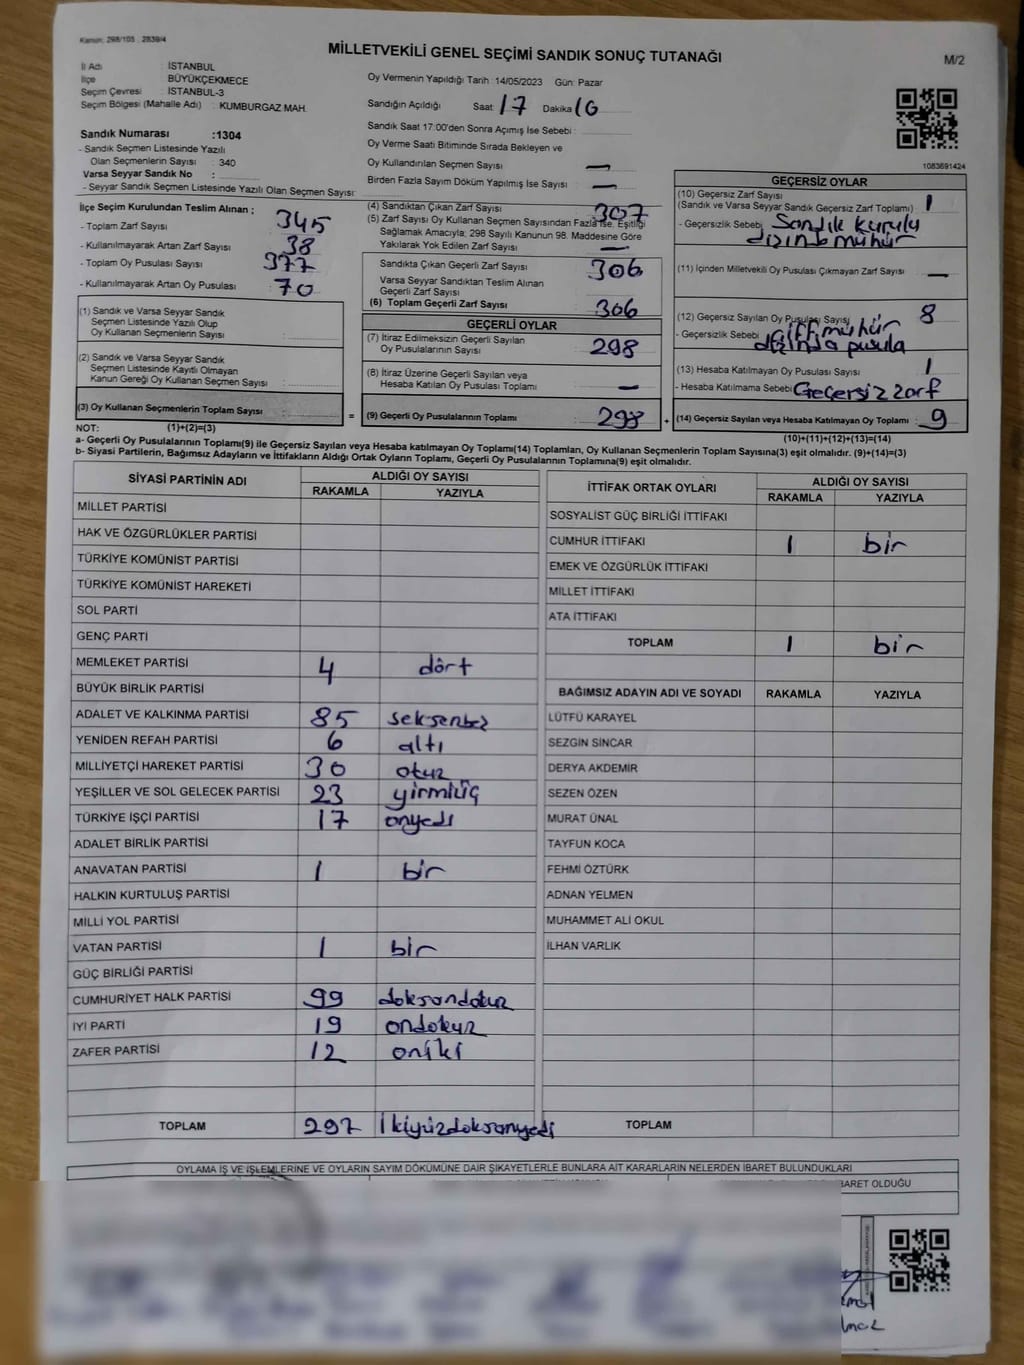 Kanun: 298/105 2839/4
MİLLETVEKİLİ GENEL SEÇİMİ SANDIK SONUÇ TUTANAĞI
M/2
İl Adı : İSTANBUL
İlçe BÜYÜKÇEKMECE
Seçim Çevresi : İSTANBUL-3
Seçim Bölgesi (Mahalle Adı) : KUMBURGAZ MAH.
Oy Vermenin Yapıldığı Tarih : 14/05/2023 Gün: Pazar
Sandığın Açıldığı Saat 17 Dakika 16
Sandık Saat 17:00'den Sonra Açımış İse Sebebi :
Oy Verme Saati Bitiminde Sırada Bekleyen ve
Oy Kullandırılan Seçmen Sayısı : —
Birden Fazla Sayım Döküm Yapılmış İse Sayısı : —
1083691424
Sandık Numarası :1304
- Sandık Seçmen Listesinde Yazılı
Olan Seçmenlerin Sayısı : 340
Varsa Seyyar Sandık No :
- Seyyar Sandık Seçmen Listesinde Yazılı Olan Seçmen Sayısı:
İlçe Seçim Kurulundan Teslim Alınan ;
- Toplam Zarf Sayısı : 345
- Kullanılmayarak Artan Zarf Sayısı : 38
- Toplam Oy Pusulası Sayısı : 377
- Kullanılmayarak Artan Oy Pusulası : 70
(1) Sandık ve Varsa Seyyar Sandık
Seçmen Listesinde Yazılı Olup
Oy Kullanan Seçmenlerin Sayısı :
(2) Sandık ve Varsa Seyyar Sandık
Seçmen Listesinde Kayıtlı Olmayan
Kanun Gereği Oy Kullanan Seçmen Sayısı :
(3) Oy Kullanan Seçmenlerin Toplam Sayısı : =
(4) Sandıktan Çıkan Zarf Sayısı 307
(5) Zarf Sayısı Oy Kullanan Seçmen Sayısından Fazla ise, Eşitliği
Sağlamak Amacıyla; 298 Sayılı Kanunun 98. Maddesine Göre
Yakılarak Yok Edilen Zarf Sayısı —
Sandıkta Çıkan Geçerli Zarf Sayısı 306
Varsa Seyyar Sandıktan Teslim Alınan
Geçerli Zarf Sayısı
(6) Toplam Geçerli Zarf Sayısı 306
GEÇERLİ OYLAR
(7) İtiraz Edilmeksizin Geçerli Sayılan
Oy Pusulalarının Sayısı : 298
(8) İtiraz Üzerine Geçerli Sayılan veya
Hesaba Katılan Oy Pusulası Toplamı : —
(9) Geçerli Oy Pusulalarının Toplamı 298 +
GEÇERSİZ OYLAR
(10) Geçersiz Zarf Sayısı
(Sandık ve Varsa Seyyar Sandık Geçersiz Zarf Toplamı) : 1
- Geçersizlik Sebebi Sandık kurulu
dışında mühür
(11) İçinden Milletvekili Oy Pusulası Çıkmayan Zarf Sayısı —
(12) Geçersiz Sayılan Oy Pusulası Sayısı 8
- Geçersizlik Sebebi Çift mühür
dışında pusula
(13) Hesaba Katılmayan Oy Pusulası Sayısı 1
- Hesaba Katılmama Sebebi Geçersiz zarf
(14) Geçersiz Sayılan veya Hesaba Katılmayan Oy Toplamı : 9
NOT: (1)+(2)=(3)
(10)+(11)+(12)+(13)=(14)
a- Geçerli Oy Pusulalarının Toplamı(9) ile Geçersiz Sayılan veya Hesaba katılmayan Oy Toplamı(14) Toplamları, Oy Kullanan Seçmenlerin Toplam Sayısına(3) eşit olmalıdır. (9)+(14)=(3)
b- Siyasi Partilerin, Bağımsız Adayların ve İttifakların Aldığı Ortak Oyların Toplamı, Geçerli Oy Pusulalarının Toplamına(9) eşit olmalıdır.
SİYASİ PARTİNİN ADI
ALDIĞI OY SAYISI
RAKAMLA YAZIYLA
MİLLET PARTİSİ
HAK VE ÖZGÜRLÜKLER PARTİSİ
TÜRKİYE KOMÜNİST PARTİSİ
TÜRKİYE KOMÜNİST HAREKETİ
SOL PARTİ
GENÇ PARTİ
MEMLEKET PARTİSİ 4 dört
BÜYÜK BİRLİK PARTİSİ
ADALET VE KALKINMA PARTİSİ 85 seksenbeş
YENİDEN REFAH PARTİSİ 6 altı
MİLLİYETÇİ HAREKET PARTİSİ 30 otuz
YEŞİLLER VE SOL GELECEK PARTİSİ 23 yirmiüç
TÜRKİYE İŞÇİ PARTİSİ 17 onyedi
ADALET BİRLİK PARTİSİ
ANAVATAN PARTİSİ 1 bir
HALKIN KURTULUŞ PARTİSİ
MİLLİ YOL PARTİSİ
VATAN PARTİSİ 1 bir
GÜÇ BİRLİĞİ PARTİSİ
CUMHURİYET HALK PARTİSİ 99 doksandokuz
İYİ PARTİ 19 ondokuz
ZAFER PARTİSİ 12 oniki
TOPLAM 297 İkiyüzdoksanyedi
İTTİFAK ORTAK OYLARI
ALDIĞI OY SAYISI
RAKAMLA YAZIYLA
SOSYALİST GÜÇ BİRLİĞİ İTTİFAKI
CUMHUR İTTİFAKI 1 bir
EMEK VE ÖZGÜRLÜK İTTİFAKI
MİLLET İTTİFAKI
ATA İTTİFAKI
TOPLAM 1 bir
BAĞIMSIZ ADAYIN ADI VE SOYADI RAKAMLA YAZIYLA
LÜTFÜ KARAYEL
SEZGİN SİNCAR
DERYA AKDEMİR
SEZEN ÖZEN
MURAT ÜNAL
TAYFUN KOCA
FEHMİ ÖZTÜRK
ADNAN YELMEN
MUHAMMET ALİ OKUL
İLHAN VARLIK
TOPLAM
OYLAMA İŞ VE İŞLEMLERİNE VE OYLARIN SAYIM DÖKÜMÜNE DAİR ŞİKAYETLERLE BUNLARA AİT KARARLARIN NELERDEN İBARET BULUNDUKLARI
İBARET OLDUĞU